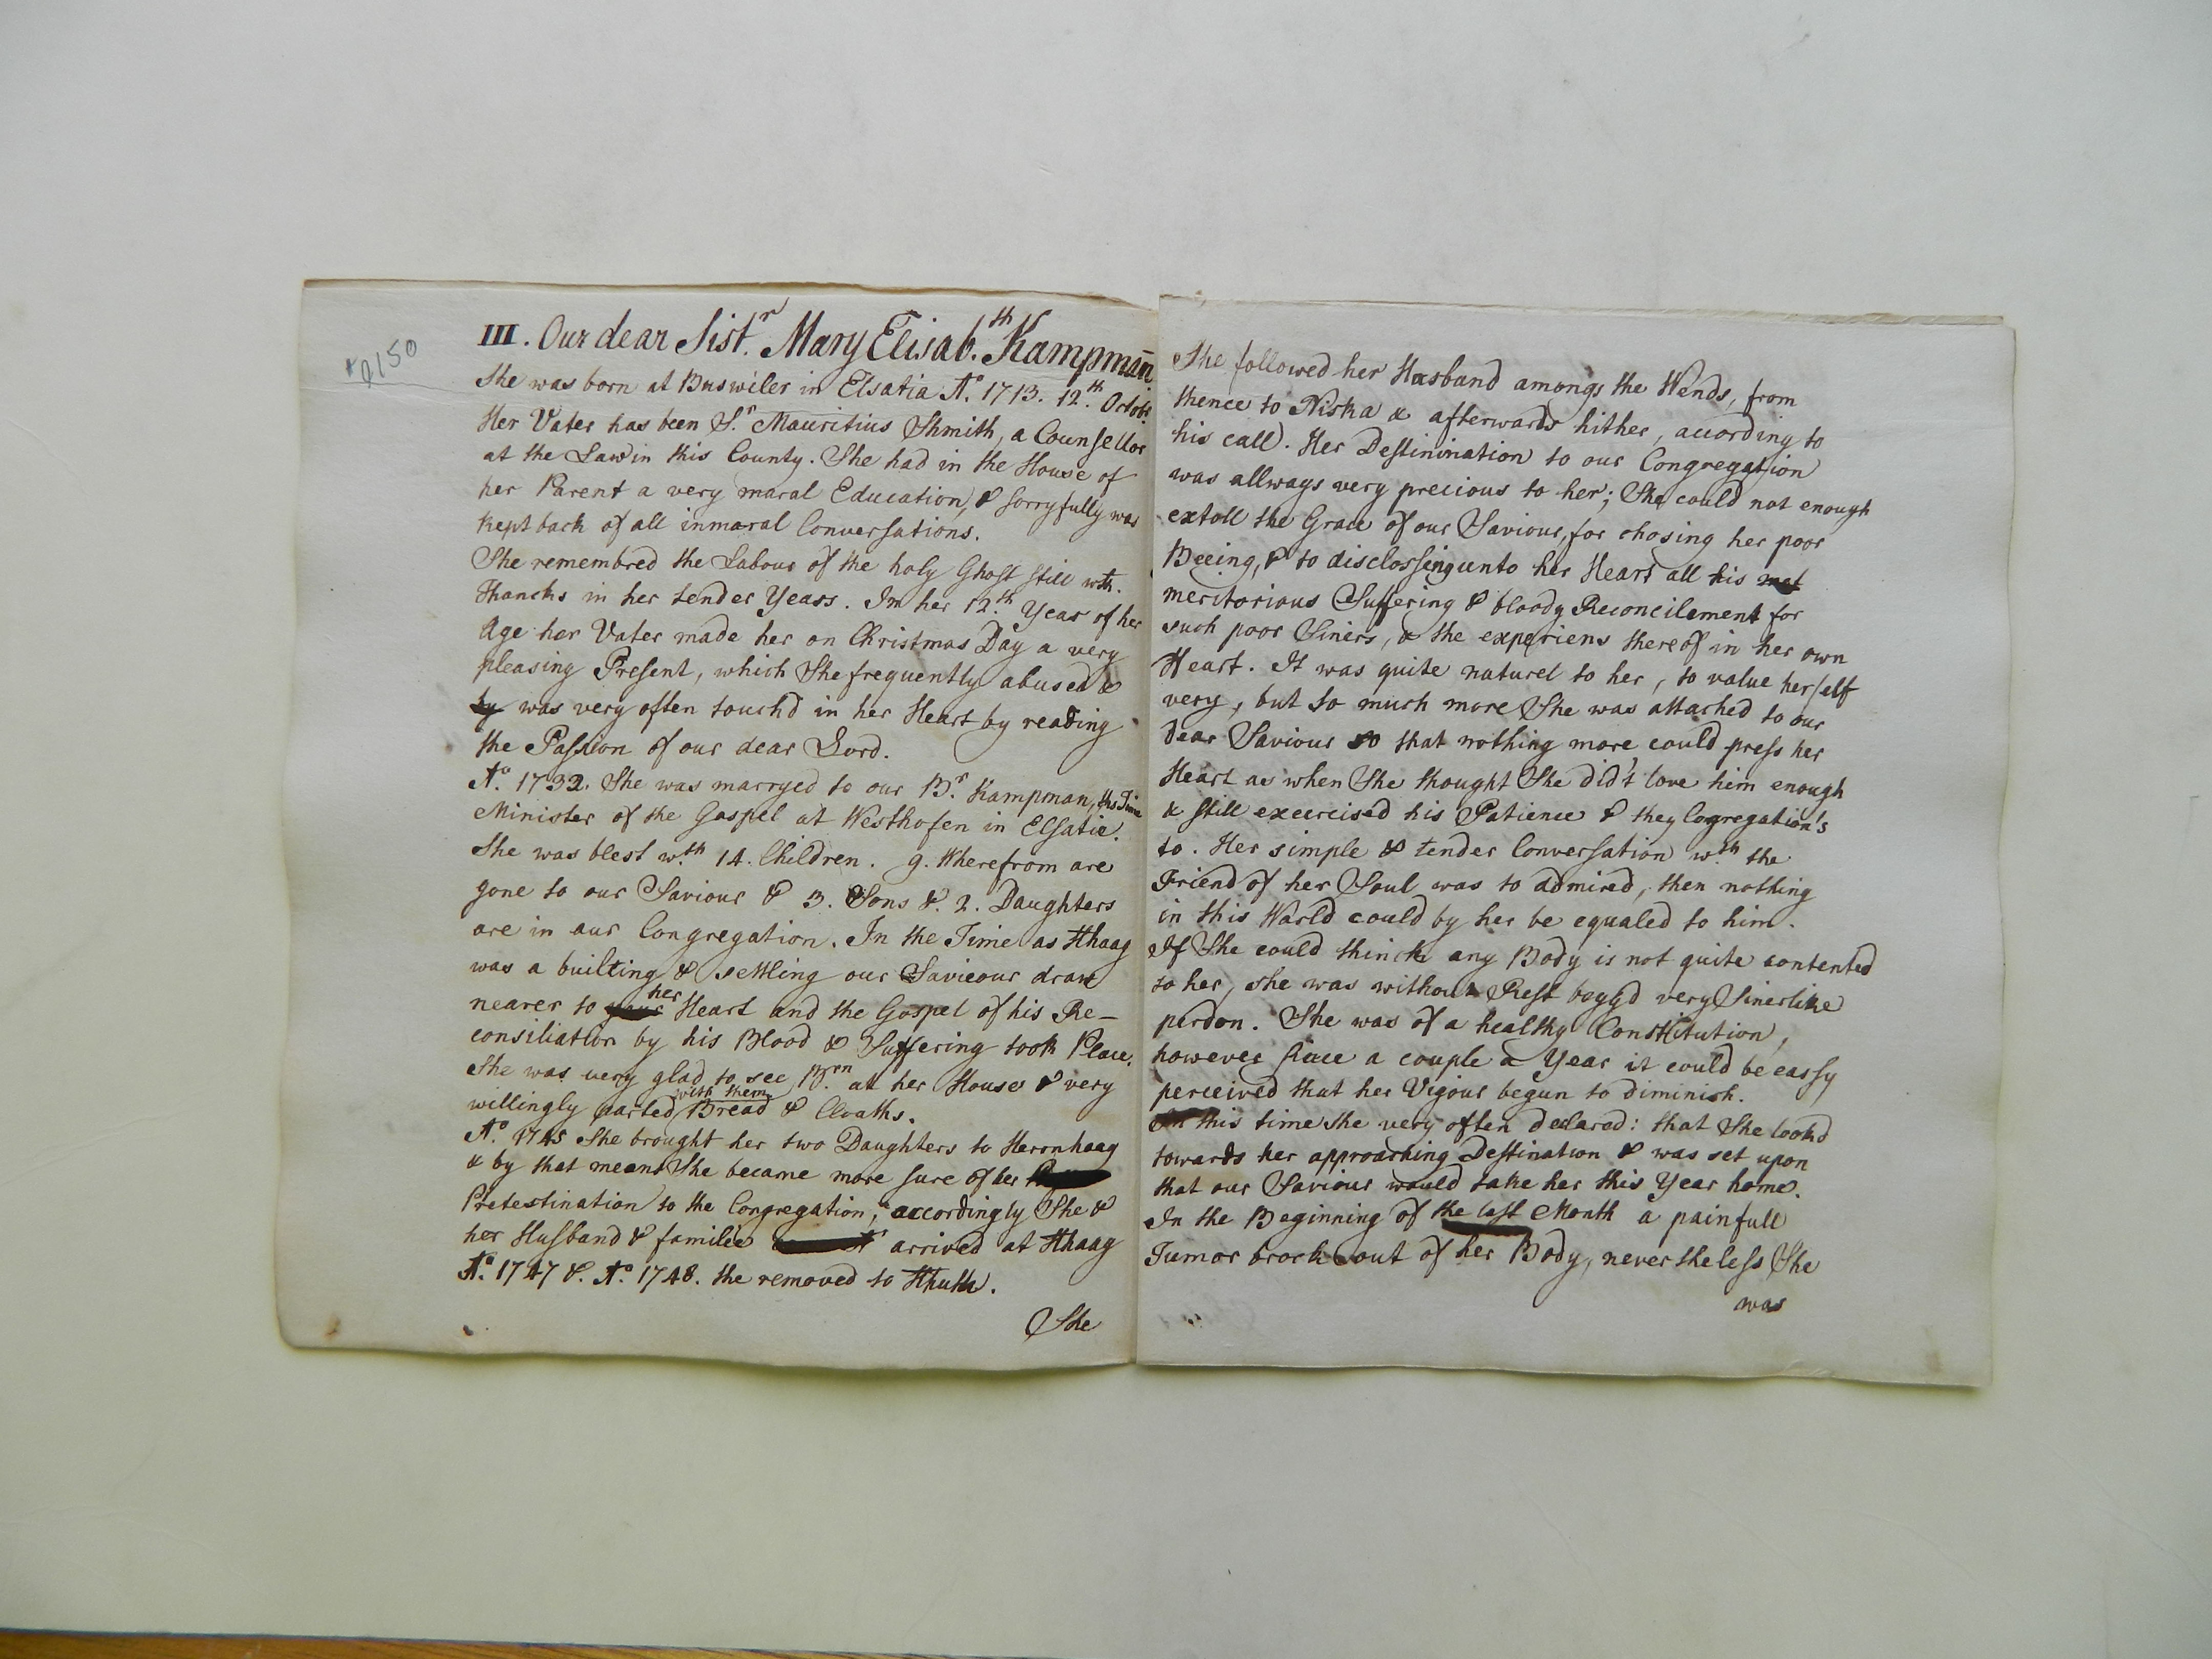 #0150
III. Our dear Sistr. Mary Elisab.th Kampmañ
She was born at Buswiler in Elsatia A.o 1713. 12.th Octobr.
Her Vater has been S.r Mauritius Shmith, a Counsellor
at the Law in this County. She had in the House of
her Parent a very maral Education, & sorryfully was
kept back of all inmaral Conversations.
She remembred the Labour of the holy Ghost still wth.
Thancks in her tender Years. In her 12.th Year of her
Age her Vater made her on Christmas Day a very
pleasing Present, which She frequently abused &
was very often touch'd in her Heart by reading
the Passion of our dear Lord.
A.o 1732. She was marryed to our B.r Kampman, ths Time
Minister of the Gospel at Westhofen in Elsatie.
She was blest w.th 14. Children. 9. Wherefrom are
gone to our Saviour & 3. Sons &. 2. Daughters
are in our Congregation. In the Time as Hhaag
was a builting & settling our Savieour draw
nearer to her Heart and the Gospel of his Re-
consiliation by his Blood & Suffering took Place.
She was very glad to see B.rn at her House & very
willingly parted with them Bread & Cloaths.
A.o 1745 She brought her two Daughters to Herrnhaag
& by that meant She became more sure of her
Pretestination to the Congregation, accordingly She &
her Husband & familie arrived at Hhaag
A.o 1747 &. A.o 1748. she removed to Hhuth.
She
She followed her Husband amongs the Wends, from
thence to Niska & afterwards hither, acording to
his call. Her Destinination to our Congregation
was allways very precious to her; She could not enough
extoll the Grace of our Saviour, for chosing her poor
Beeing, & to disclossing unto her Heart all his
meritorious Suffering & bloody Reconcilement for
such poor Siners, & the experiens there of in her own
Heart. It was quite naturel to her, to value herself
very, but so much more She was attached to our
dear Saviour so that nothing more could press her
Heart as when She thought She did't love him enough
& still excercised his Patience & they Cogregation's
to. Her simple & tender Conversation w.th the
Friend of her Soul was to admired, then nothing
in this World could by her be equaled to him.
If She could thinck any Body is not quite contented
to her, she was without Rest begg'd very Sinerlike
perdon. She was of a healthy Constitution,
however since a couple a Year it could be eassy
perceived that her Vigour begun to diminish.
In this time she very often declared: that She look'd
towards her approaching Destination & was set upon
that our Saviour would take her this Year home.
In the Beginning of the last Month a painfull
Tumor brock out of her Body, nevertheless She
was